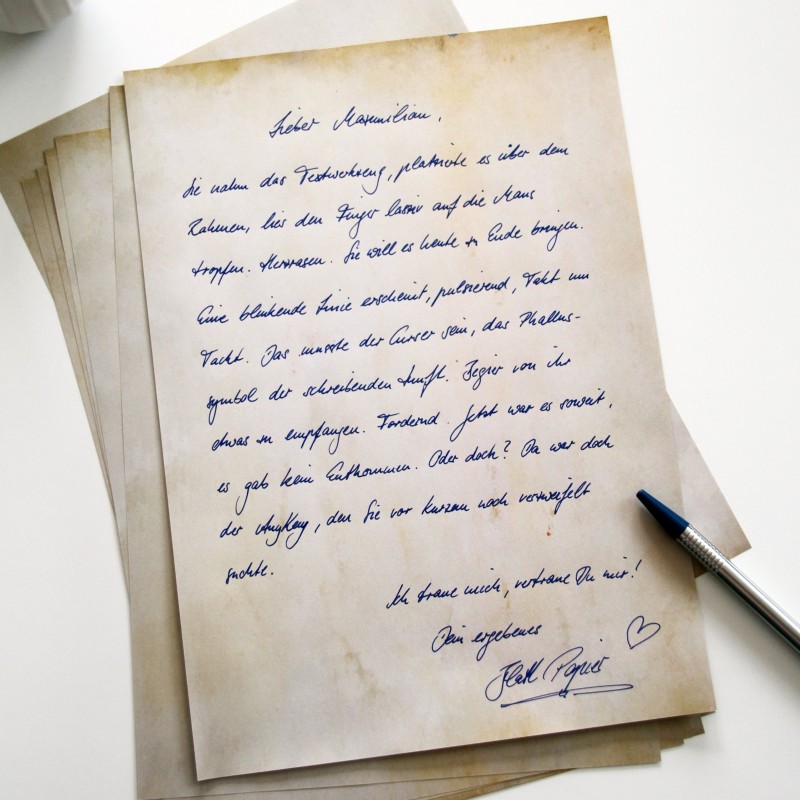 Lieber Maximilian,
Sie nahm das Textwerkzeug, platzierte es über dem
Rahmen, lies den Finger lasziv auf die Maus
tropfen. Herzrasen. Sie will es heute zu Ende bringen.
Eine blinkende Linie erscheint, pulsierend, Takt um
Tackt. Das musste der Curser sein, das Phallus-
symbol der schreibenden Zunft. Begier von ihr
etwas zu empfangen. Fordernd. Jetzt war es soweit,
es gab kein Entkommen. Oder doch? Da war doch
der AnyKey, den Sie vor kurzem noch verzweifelt
suchte.
Ich traue mich, vertraue Du mir!
Dein ergebenes
Blatt Papier